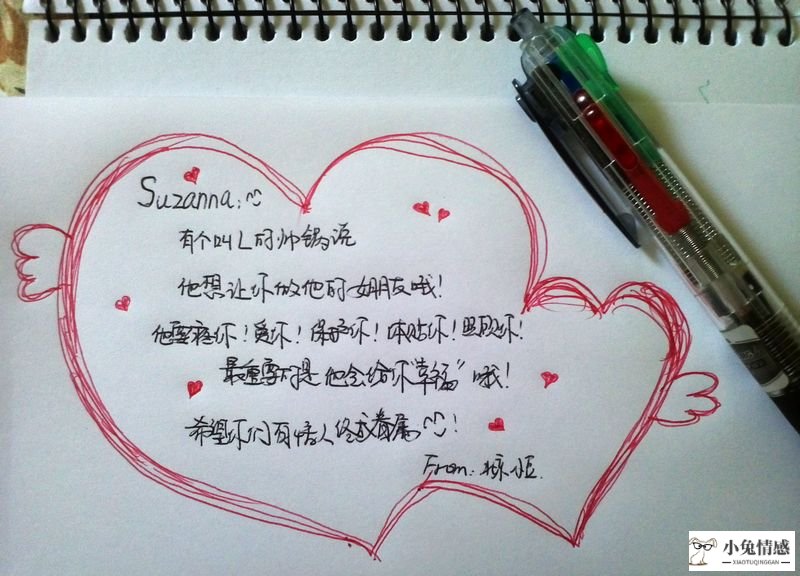 Suzanna:
有个叫L的帅锅说
他想让你做他的女朋友哦!
他要疼你!爱你!保护你!体贴你!照顾你!
最重要的是他会给你"幸福"哦!
希望你们有情人终成眷属!
From:
小兔情感
XIAOTUQINGGAN